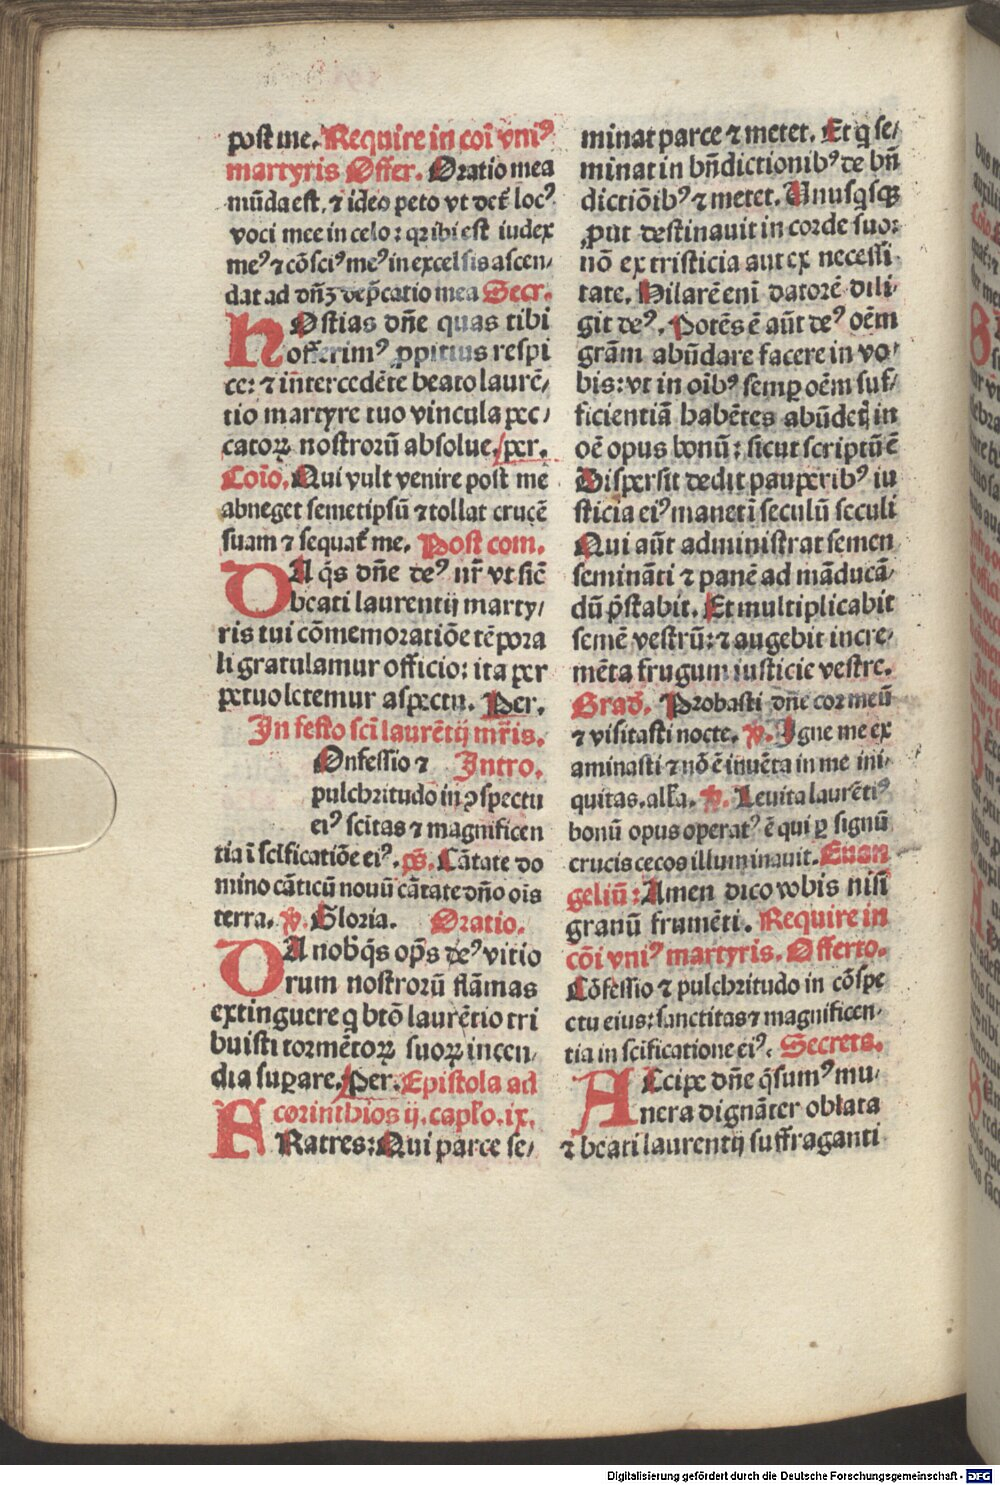 post me. Require in coi͂ vniꝰ
martyris Offer. Oratio mea
mūda est, ⁊ ideo peto vt det͛ locꝰ
voci mee in celo: qꝛ ibi est iudex
meꝰ ⁊ cōsciꝰ meꝰ in excelsis ascen/
dat ad dn̄ꝫ dep̄catio mea Secr.
HOstias dn̄e quas tibi
offerimꝰ ꝓpitius respi
ce: ⁊ in̄tercedēte beato laurē/
tio martyre tuo vincula pec/
catoꝝ nostrorū absolue. per.
Coīo. Qui vult venire post me
abneget semetipsū ⁊ tollat crucē
suam ⁊ sequat͛ me. Post com.
DA q̄s dn̄e deꝰ nr̄ vt sic̄
beati laurentij marty/
ris tui cōmemoratiōe tēpora
li gratulamur officio: ita per
petuo letemur aspectu. Per.
In festo sci͂ laurētij mr̄is.
Onfessio ⁊ Intro.
pulchritudo in ꝯspectu
eiꝰ scītas ⁊ magnificen
tia ī scīficatiōe eiꝰ. ps̄. Cātate do
mino cāticū nouū cātate dn̄o oīs
terra. ℣. Gloria. Oratio.
DA nob̄ q̄s op̄s deꝰ vitio
rum nostrorū flāmas
extinguere q btō laurētio tri
buisti tormētoꝝ suoꝝ incen/
dia suꝑare. Per. Epistola ad
corinthios ij. capl̄o. ix.
FRatres: Qui parce se/
minat parce ⁊ metet. Et q se/
minat in bn̄dictionibꝰ de bn̄
dictiōibꝰ ⁊ metet. Unusqsqꝫ
ꝓut destinauit in corde suo:
nō ex tristicia aut ex necessi
tate. Hilarē eni͂ datorē dili/
git deꝰ. Potēs ē aūt deꝰ oēm
grām abūdare facere in vo/
bis: vt in oībꝰ semꝑ oēm suf/
ficientiā habētes abūdetis in
oē opus bonū: sicut scriptū ē
Dispersit dedit pauperibꝰ iu
sticia eiꝰ manet ī seculū seculi
Qui aūt administrat semen
semināti ⁊ panē ad māducā/
dū p̄stabit. Et multiplicabit
semē vestrū: ⁊ augebit incre/
mēta frugum iusticie vestre.
Grad̄. Probasti dn̄e cor meū
⁊ visitasti nocte. ℣. Igne me ex
aminasti ⁊ nō ē inuēta in me ini/
quitas. all̄a. ℣. Leuita laurētiꝰ
bonū opus operatꝰ ē qui ꝑ signū
crucis cecos illuminauit. Euan
geliū: Amen dico vobis nisi
granū frumēti. Require in
cōi vniꝰ martyris. Offerto.
Cōfessio ⁊ pulchritudo in cōspe
ctu eius: sanctitas ⁊ magnificen/
tia in scīficatione eiꝰ. Secreta.
ACcipe dn̄e q̄sumꝰ mu/
nera dignāter oblata
⁊ beati laurentij suffraganti
Digitalisierung gefördert durch die Deutsche Forschungsgemeinschaft - DFG